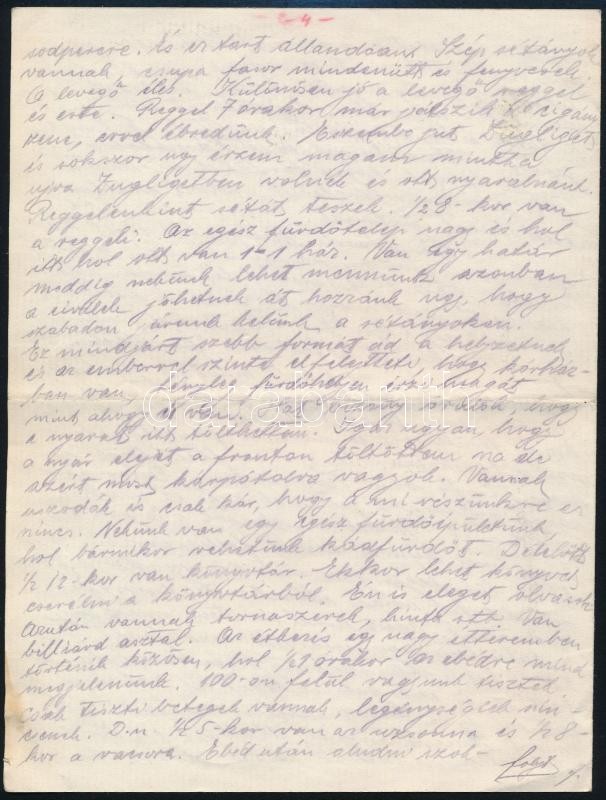 - 4 -
sodperere. És ez tart állandóan. Szép sétányok
vannak, csupa fasor mindenütt és fenyvesek.
A levegő éles. Különösen jó a levegő reggel
és este. Reggel 7 órakor már játszik a cigány
zene, erre ébredünk. Eszembe jut Zugliget
és sokszor ugy érzem magam mintha
ujra Zugligetben volnék és ott nyaralnánk.
Reggelenkint sétát teszek. 1/2 8-kor van
a reggeli. Az egész fürdőtelep nagy és hol
itt hol ott van 1-1 ház. Van egy határ
meddig nekünk lehet mennünk azonban
a civilek jöhetnek át hozzánk ugy, hogy
szabadon járunk kelünk a sétányokon.
Ez mindjárt szebb formát ád a helyzetnek
és az emberrel szinte elfelejteti, hogy kórház-
ban van, tényleg fürdőhelyen érzi magát
mint ahogy itt van. hogy
a nyarat itt tölthettem. Igaz ugyan, hogy
a nyár elejét a fronton töltöttem na de
azért most kárpótolva vagyok. Vannak
uszodák és csak kár, hogy a mi részünkre ez
nincs. Nekünk van egy egész fürdőépületünk,
hol bármikor vehetünk kádfürdőt. Délelőtt
1/2 12-kor van könyvtár. Ekkor lehet könyvet
cserélni a könyvtárból. Én is eleget olvasok.
Azután vannak tornaszerek, hinta stb. Van
billiárd asztal. Az étkezés egy nagy étteremben
történik közösen, hol 1/2 1 órakor az ebédre mind
megjelenünk. 100-on felül vagyunk tisztek
csak tiszti betegek vannak, legénységiek nin-
csenek. D.u. 1/2 5-kor van az uzsonna és 1/2 8-
kor a vacsora. Ebéd után aludni szok-